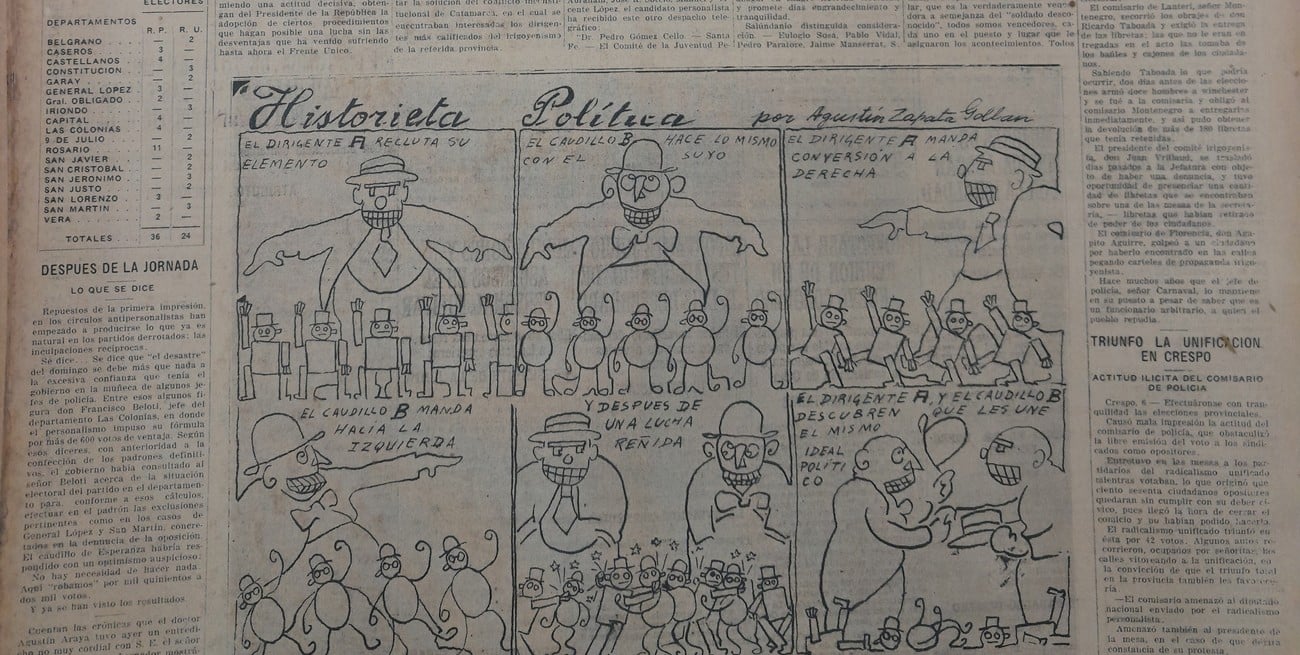 ELECTORES
DEPARTAMENTOS
R. P. R. U.
BELGRANO . . — 2
CASEROS . . . 3 —
CASTELLANOS 4 —
CONSTITUCION — 3
GARAY . . . . — 2
GENERAL LOPEZ 3 —
Gral. OBLIGADO 2 —
IRIONDO — 3
CAPITAL . . . 4 —
LAS COLONIAS 4 —
9 DE JULIO . . — 2
ROSARIO . . . 11 —
SAN JAVIER . — 2
SAN CRISTOBAL — 2
SAN JERONIMO — 3
SAN JUSTO . . — 2
SAN LORENZO 3 —
SAN MARTIN . — 3
VERA . . . . 2 —
TOTALES . . . 36 24
DESPUES DE LA JORNADA
LO QUE SE DICE
Repuestos de la primera impresión,
en los círculos antipersonalistas han
empezado a producirse lo que ya es
natural en los partidos derrotados: las
inculpaciones recíprocas.
Se dice... Se dice que "el desastre"
del domingo se debe más que nada a
la excesiva confianza que tenía el
gobierno en la muñeca de algunos je-
fes de policía. Entre esos algunos fi-
gura don Francisco Beloti, jefe del
departamento Las Colonias, en donde
el personalismo impuso su fórmula
por más de 600 votos de ventaja. Según
esos díceres, con anterioridad a la
confección de los padrones definiti-
vos, el gobierno había consultado al
señor Beloti acerca de la situación
electoral del partido en el departamen-
to para, conforme a esos cálculos,
efectuar en el padrón las exclusiones
pertinentes como en los casos de
General López y San Martín, concre-
tados en la denuncia de la oposición.
El caudillo de Esperanza habría res-
pondido con un optimismo auspicioso:
No hay necesidad de hacer nada.
Aquí "robamos" por mil quinientos a
dos mil votos.
Y ya se han visto los resultados.
Cuentan las crónicas que el doctor
Agustín Araya tuvo ayer un entredi-
cho no muy cordial con S. E. el señor
miendo una actitud decisiva, obten-
gan del Presidente de la República la
adopción de ciertos procedimientos
que hagan posible una lucha sin las
desventajas que ha venido sufriendo
hasta ahora el Frente Unico.
tucional de Catamarca, en el cual se
encontraban interesados los dirigen-
tes más calificados del irigoyenismo
de la referida provincia.
cente López, el candidato personalista
ha recibido este otro despacho tele-
gráfico
"Dr. Pedro Gómez Cello. — Santa
Fe. — El Comité de la Juventud Pe-
y promete días engrandecimiento y
tranquilidad.
Salúdanlo distinguida considera-
ción. — Eulogio Sosa, Pablo Vidal,
Pedro Paralore, Jaime Manserrat, S.
lar, que es la verdaderamente vence-
dora a semejanza del "soldado desco-
nocido", todos somos vencedores, ca-
da uno en el puesto y lugar que le
asignaron los acontecimientos. Todos
"Historieta Política por Agustín Zapata Gollan
EL DIRIGENTE A RECLUTA SU
ELEMENTO
EL CAUDILLO B HACE LO MISMO
CON EL SUYO
EL DIRIGENTE A MANDA
CONVERSIÓN A LA
DERECHA
EL CAUDILLO B MANDA
HACIA LA
IZQUIERDA
Y DESPUES DE
UNA LUCHA
REÑIDA
EL DIRIGENTE A, Y EL CAUDILLO B
DESCUBREN QUE LES UNE
EL MISMO
IDEAL
POLÍTI
CO
El comisario de Lanteri, señor Mon-
tenegro, recorrió los obrajes de don
Ricardo Taboada y exigió la entrega
de las libretas; las que no le eran en
tregadas en el acto las tomaba de
los baúles y cajones de los ciudada-
nos.
Sabiendo Taboada lo que podría
ocurrir, dos días antes de las eleccio-
nes armó doce hombres a winchester
y se fué a la comisaría y obligó al
comisario Montenegro a entregarlas
inmediatamente, y así pudo obtener
la devolución de más de 180 libretas
que tenía retenidas.
El presidente del comité irigoyenis-
ta, don Juan Vrillaud, se trasladó
días pasados a la Jefatura con obje-
to de haber una denuncia, y tuvo
oportunidad de presenciar una canti-
dad de libretas que se encontraban
sobre una de las mesas de la secreta-
ría, — libretas que habían retirado
de poder de los ciudadanos.
El comisario de Florencia, don Aga-
pito Aguirre, golpeó a un ciudadano
por haberlo encontrado en las calles
pegando carteles de propaganda irigo-
yenista.
Hace muchos años que el jefe de
policía, señor Carnaval, lo mantiene
en su puesto a pesar de saber que es
un funcionario arbitrario, a quien el
pueblo repudia.
TRIUNFO LA UNIFICACION
EN CRESPO
ACTITUD ILICITA DEL COMISARIO
DE POLICIA
Crespo, 6 — Efectuáronse con tran-
quilidad las elecciones provinciales.
Causó mala impresión la actitud del
comisario de policía, que obstaculizó
la libre emisión del voto a los sindi-
cados como opositores.
Entretuvo en las mesas a los par-
tidarios del radicalismo unificado
mientras votaban, lo que originó que
ciento sesenta ciudadanos opositores
quedaran sin cumplir con su deber cí-
vico, pues llegó la hora de cerrar el
comicio y no habían podido hacerlo.
El radicalismo unificado triunfó en
ésta por 42 votos. Algunos autos re-
corrieron, ocupados por señoritas, las
calles vitoreando a la unificación, en
la convicción de que el triunfo total
en la provincia también les favorece-
ría
—El comisario amenazó al diputado
nacional enviado por el radicalismo
personalista.
Amenazó también al presidente de
la mesa, en el caso de que dejara
constancia de su protesta.